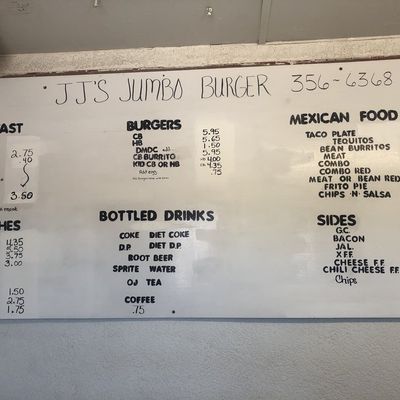 JJ'S JUMBO BURGER 356-6368
AST
2.75
.40
3.50
HES
4.35
5.50
3.75
3.00
1.50
2.75
1.75
BURGERS
CB 5.95
HB 5.65
DMDC 1.50
CB BURRITO 5.95
KID CB OR HB HB 4.00
CB 4.35
Add egg .75
BOTTLED DRINKS
COKE DIET COKE
D.P. DIET D.P.
ROOT BEER
SPRITE WATER
OJ TEA
COFFEE
.75
MEXICAN FOOD
TACO PLATE
TEQUITOS
BEAN BURRITOS
MEAT
COMBO
COMBO RED
MEAT OR BEAN RED
FRITO PIE
CHIPS N SALSA
SIDES
G.C.
BACON
JAL.
X F.F.
CHEESE F.F.
CHILI CHEESE F.F.
Chips